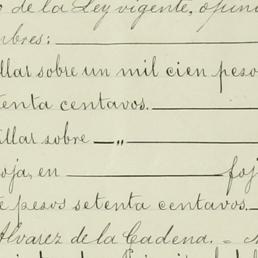 de la Ley vigente, opin
mbres:
illar sobre un mil cien peso
etenta centavos.
illar sobre — „
oja, en foj
e pesos setenta centavos.
Alvarez de la Cadena. =